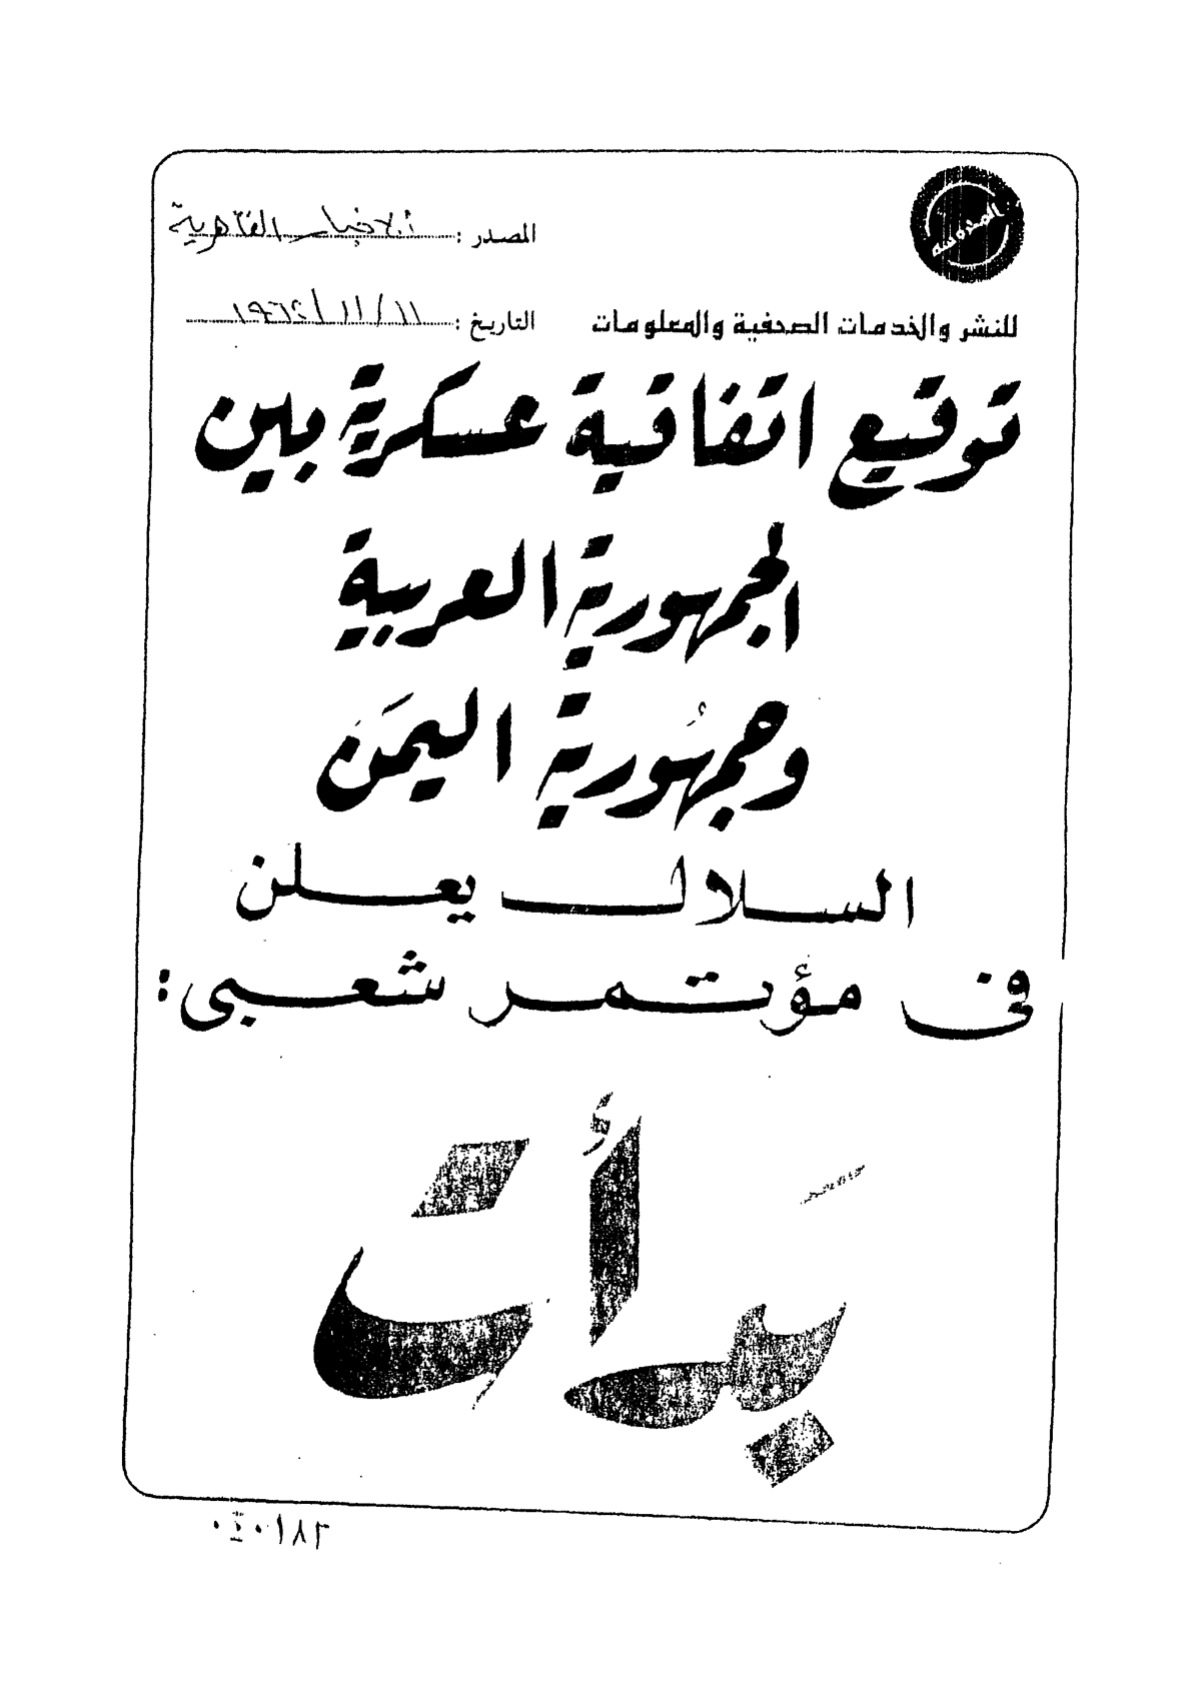 المصدر: الأخبار القاهرية
للنشر والخدمات الصحفية والمعلومات التاريخ: ١١/١١/١٩٦٢
توقيع اتفاقية عسكرية بين
الجمهورية العربية
وجمهورية اليمن
السلال يعلن
فى مؤتمر شعبى:
بدأت